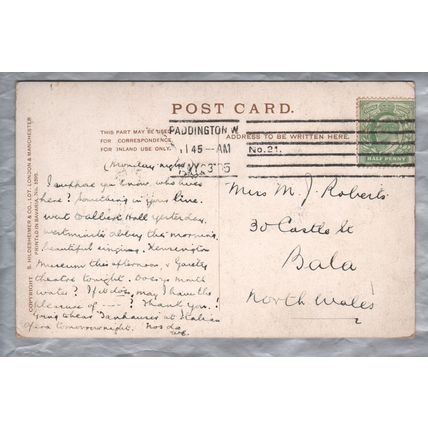 POST CARD.
THIS PART MAY BE USED
FOR CORRESPONDENCE
FOR INLAND USE ONLY.
ADDRESS TO BE WRITTEN HERE.
PADDINGTON W
11 45 - AM
05
No. 21.
HALF PENNY
COPYRIGHT S. HILDESHEIMER & CO., LDT. LONDON & MANCHESTER
PRINTED IN BAVARIA No.
(Monday night)
I suppose you know who lives
here? Something in your line.
Went Hall yesterday,
Westminster Abbey this morning,
beautiful singing. Kensington
Museum this afternoon, & Gaiety
theatre tonight. Does mouth
water? If it does, may I have the
pleasure of ----? Thank you!
Going to hear Tanhauser at Italian
Opera tomorrow night. Nos da
Miss M. J. Roberts
30 Castle St
Bala
North Wales